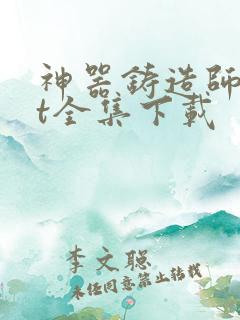 神器鋳造師
t全集下載
李文聪
未经同意禁止转载